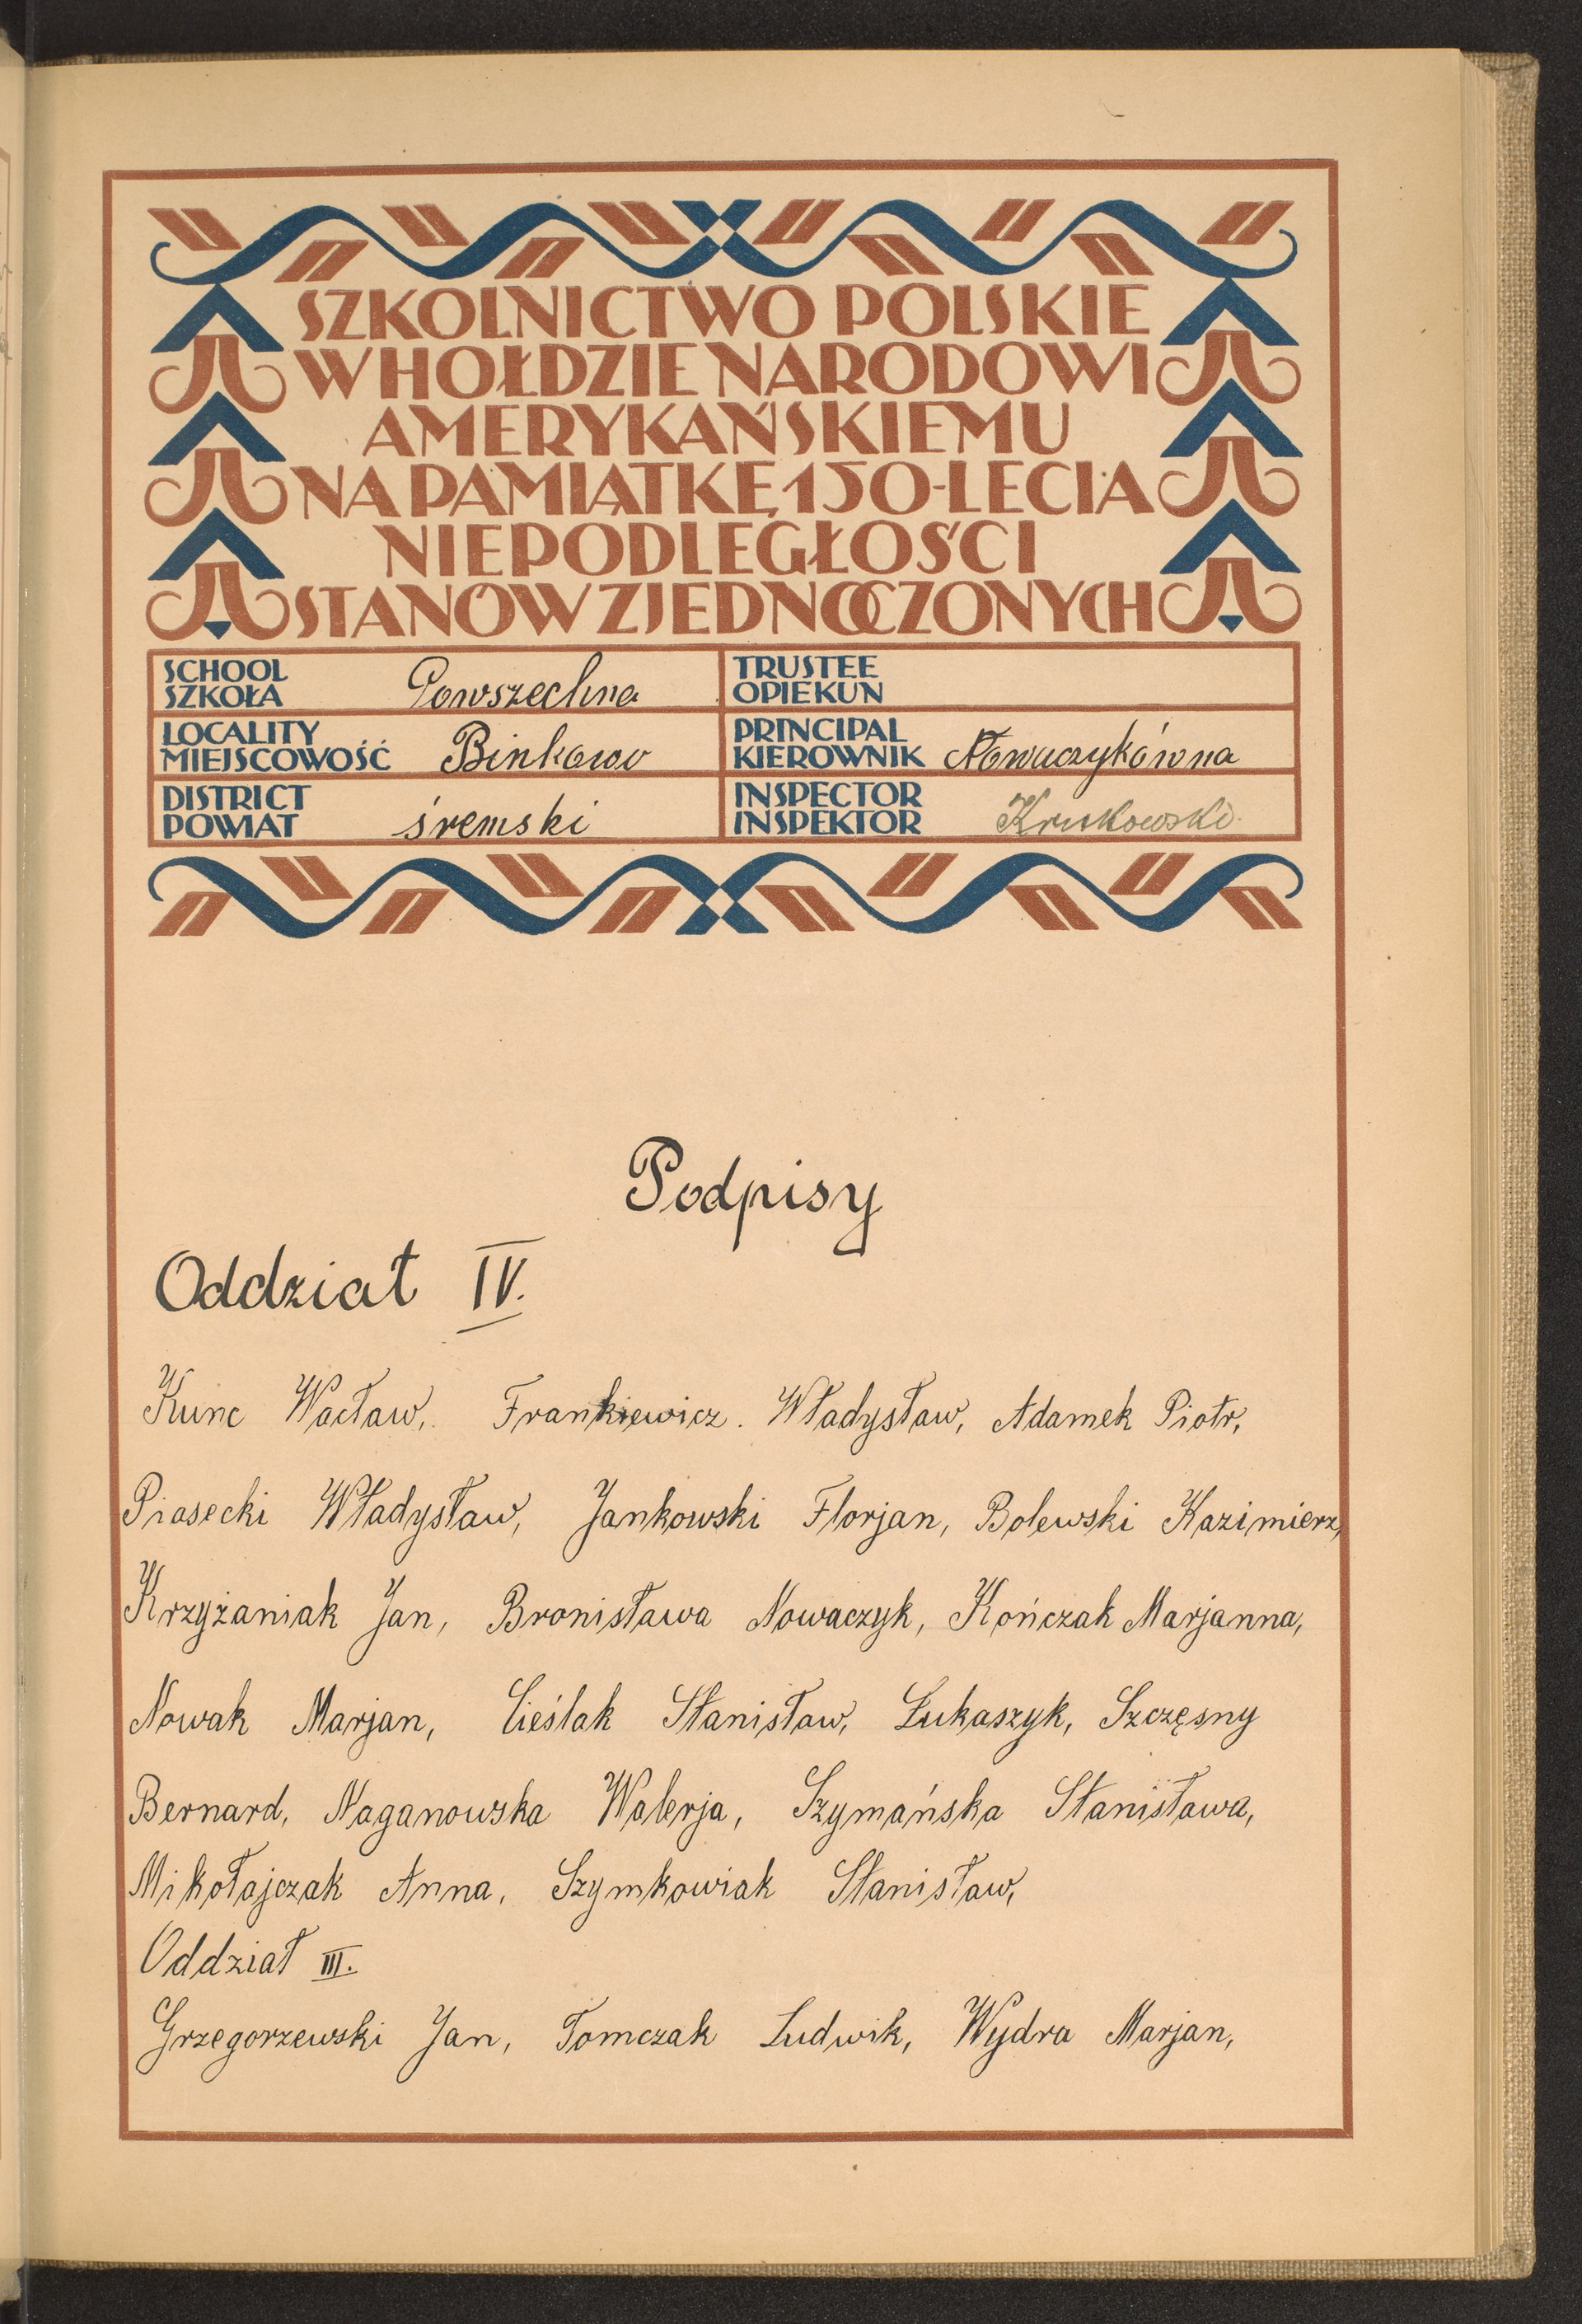 SZKOLNICTWO POLSKIE
W HOŁDZIE NARODOWI
AMERYKAŃSKIEMU
NA PAMIĄTKĘ 150-LECIA
NIEPODLEGŁOŚCI
STANÓW ZJEDNOCZONYCH
SCHOOL
SZKOŁA Powszechna
TRUSTEE
OPIEKUN
LOCALITY
MIEJSCOWOŚĆ Binkowo
PRINCIPAL
KIEROWNIK Nowaczykówna
DISTRICT
POWIAT śremski
INSPECTOR
INSPEKTOR Krukowski
Podpisy
Oddział IV.
Kunc Wacław, Frankiewicz. Władysław, Adamek Piotr,
Piasecki Władysław, Jankowski Florjan, Bolewski Kazimierz,
Krzyżaniak Jan, Bronisława Nowaczyk, Kończak Marjanna,
Nowak Marjan, Cieślak Stanisław, Łukaszyk, Szczęsny
Bernard, Naganowska Walerja, Szymańska Stanisława,
Mikołajczak Anna, Szymkowiak Stanisław,
Oddział III.
Grzegorzewski Jan, Tomczak Ludwik, Wydra Marjan,